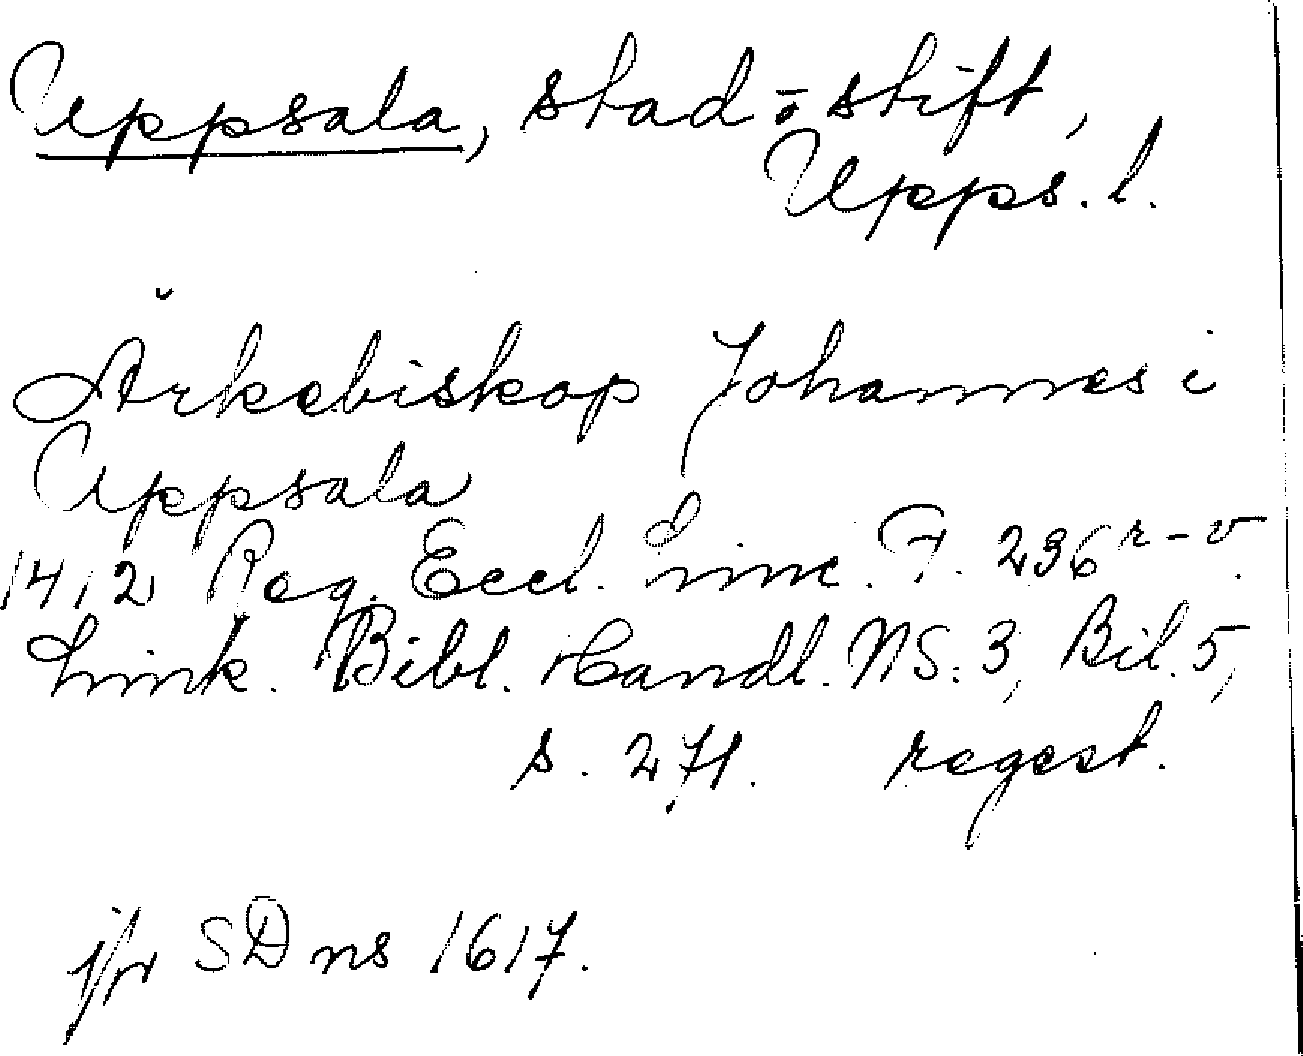 Uppsala, stad o stift,
Upps. l.
Ärkebiskop Johannes i
Uppsala
1412 Reg. Eccl. Linc. F. 236r-v.
Link. Bibl. Handl. NS. 3, Bil. 5,
s. 271. regest.
jfr SD ns 1617.